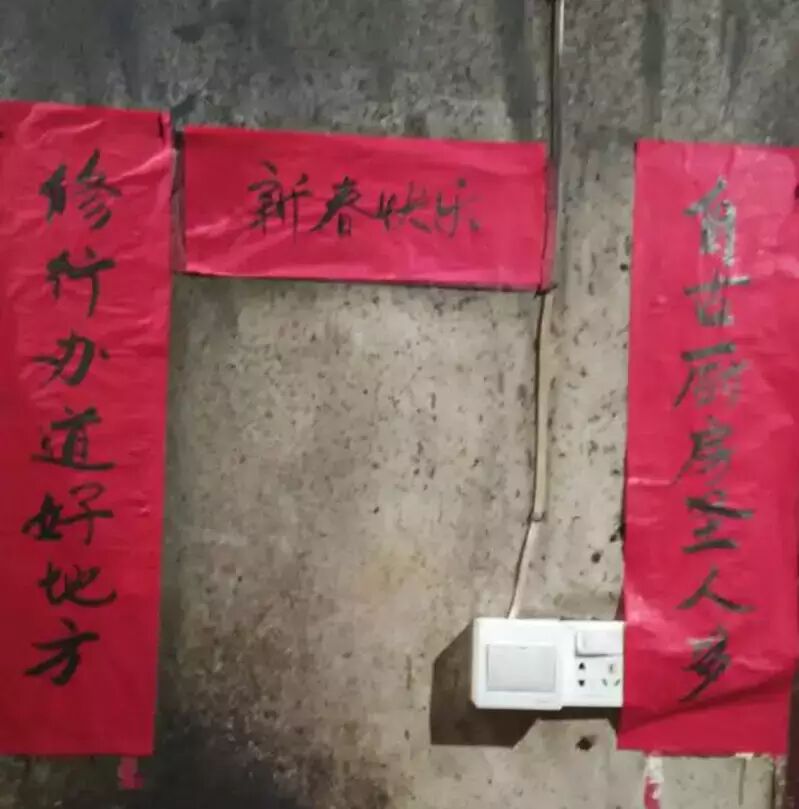 自古厨房圣人多
新春快乐
修行办道好地方